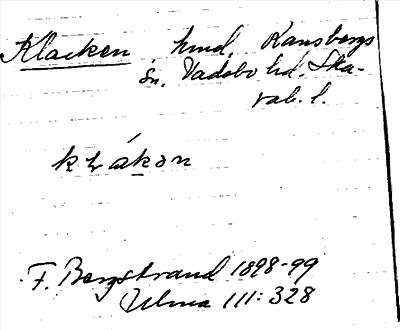 Klacken, hmd, Ransbergs
sn, Vadsbo hd, Ska-
rab. l.
klákən
F. Bergstrand 1898-99
Ulma 111:328